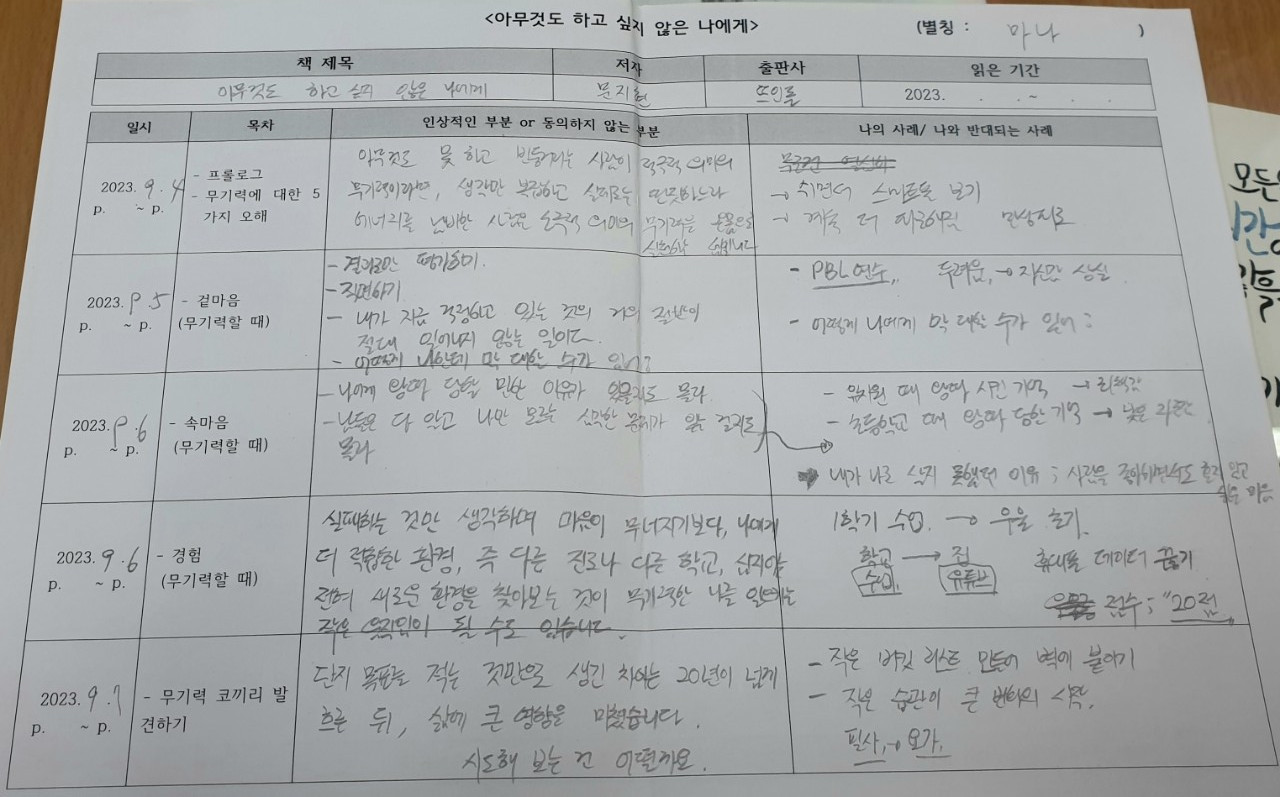 <아무것도 하고 싶지 않은 나에게>
(별칭 : 마나 )
책 제목 저자 출판사 읽은 기간
아무것도 하고 싶지 않은 나에게 문지현 뜨인돌 2023. . . ~ . .
일시 목차 인상적인 부분 or 동의하지 않는 부분 나의 사례/ 나와 반대되는 사례
2023. 9. 4
p. ~ p.
- 프롤로그
- 무기력에 대한 5
가지 오해
아무것도 못 하고 빈둥거리는 사람이 적극적 의미의
무기력이라면, 생각만 복잡하고 실제로는 만못하느라
에너지를 낭비한 사람은 소극적 의미의 무기력을 온몸으로
→ 쉬면서 스마트폰 보기
→ 계속 더
2023. 9 5
p. ~ p.
- 겉마음
(무기력할 때)
- 결과로만 평가하기.
- 직면하기
- 내가 지금 걱정하고 있는 것의 거의 절반이
절대 일어나지 않는 일이다.
- 어떻게 나한테 막 대할 수가 있어?
- PBL 연수,, 두려움, → 자신감 상실
- 어떻게 나에게 막 대할 수가 있어?
2023. 9. 6
p. ~ p.
- 속마음
(무기력할 때)
- 나에게 왕따 당할 만한 이유가 있을지도 몰라.
- 남들은 다 알고 나만 모르는 심각한 문제가 있는 걸지도
몰라
- 유치원 때 왕따 시킨 기억 → 죄책감
- 초등학교 때 왕따 당한 기억 → 낮은 자존감
내가 나로 살지 못했던 이유 ; 사람을 좋아하면서도 혼자 있고
싶은 마음
2023. 9. 6
p. ~ p.
- 경험
(무기력할 때)
실패하는 것만 생각하며 마음이 무너지기보다, 나에게
더 적합한 환경, 즉 다른 진로나 다른 학교, 심지어는
전혀 새로운 환경을 찾아보는 것이 무기력한 나를 일으키는
작은 움직임이 될 수도 있습니다.
1학기 수업. → 우울 초기.
학교 → 집
수업. 유튜브
휴대폰 데이터 끊기
점수 ; "20점
2023. 9. 7
p. ~ p.
- 무기력 코끼리 발
견하기
단지 목표를 적는 것만으로 생긴 차이는 20년이 넘게
흐른 뒤, 삶에 큰 영향을 미쳤습니다.
시도해 보는 건 어떨까요.
- 작은 버킷 리스트 만들어 벽에 붙이기
- 작은 습관이 큰 변화의 시작,
필사, → 요가.
모든